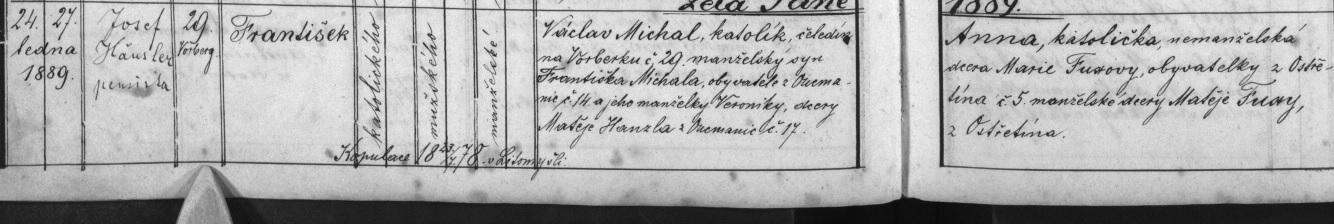 Léta Páně
1889.
24. 27.
ledna
1889.
Josef
Häusler
pensista
29.
Vorberg.
František
katolického
mužského
manželské
Václav Michal, katolík, čeledín
na Vorberku č. 29, manželský syn
Františka Michala, obyvatele z Ozema-
nic č. 14 a jeho manželky Veroniky, dcery
Matěje Hanzla z Ozemanic č. 17.
Kopulace 18 23/7 78 v Litomyšli.
Anna, katolička, nemanželská
dcera Marie Fuxovy, obyvatelky z Ostře-
tína č. 5. manželské dcery Matěje Fuxy,
z Ostřetína.